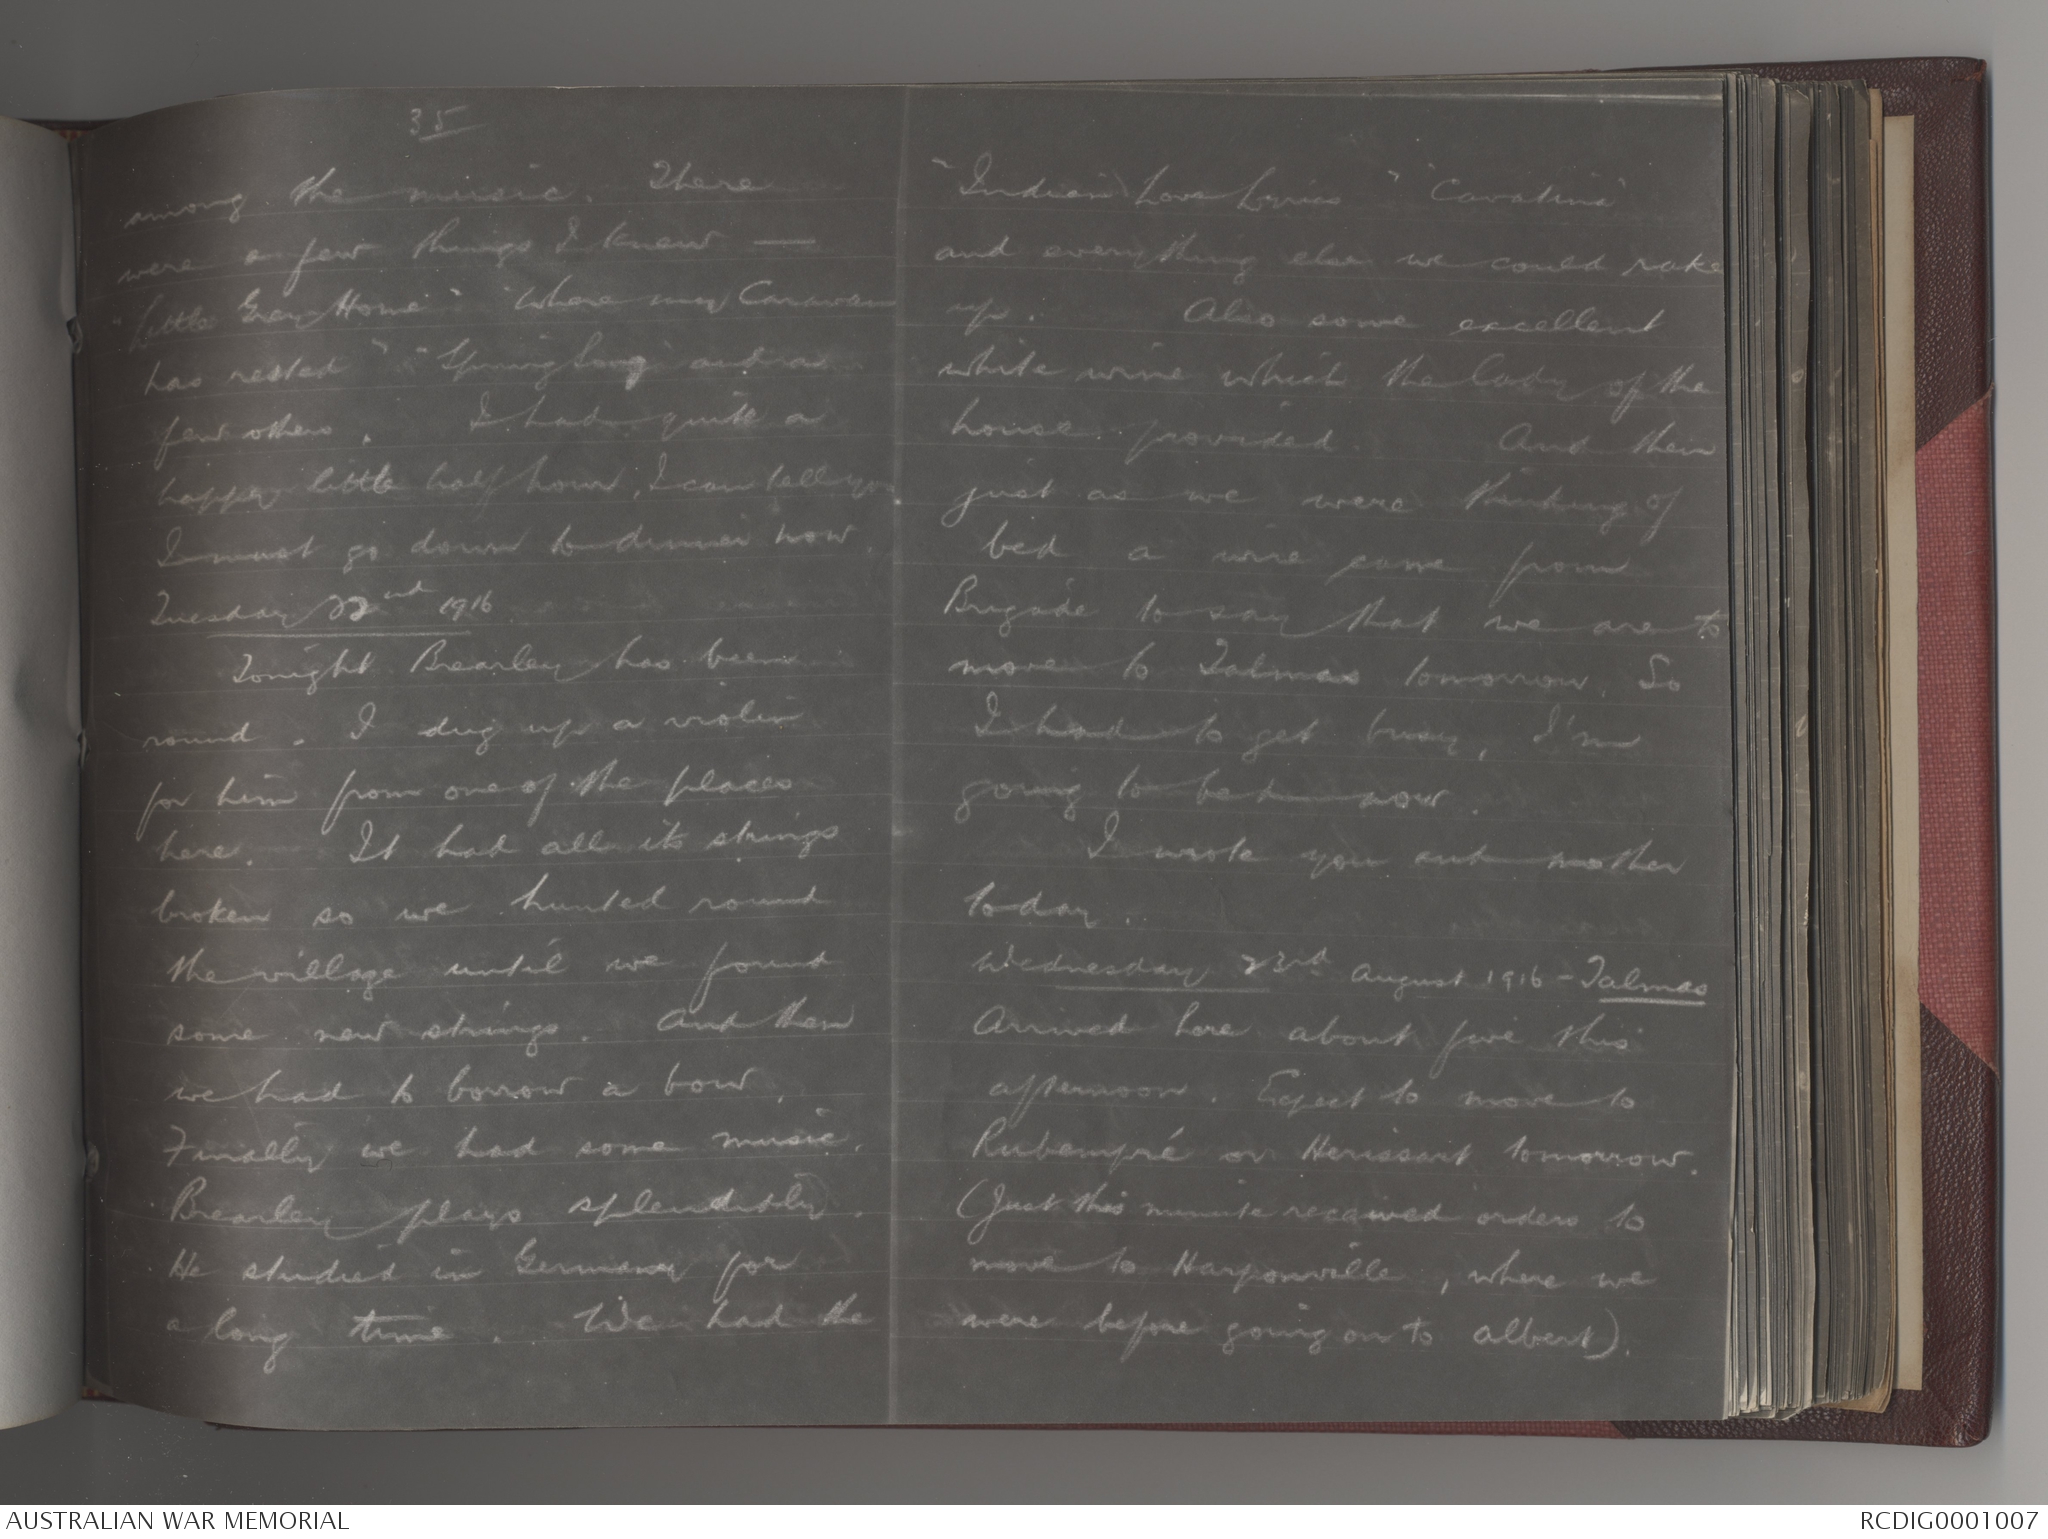 35
among the music. There
were a few things I knew —
"Little Grey Home" "Where my Caravan
has rested" "Spring Song" and a
few others. I had quite a
happy little half hour, I can tell you
I must go down to dinner now.
Tuesday 22nd 1916
Tonight Brearley has been
round. I dug up a violin
for him from one of the places
here. It had all its strings
broken so we hunted round
the village until we found
some new strings. And then
we had to borrow a bow.
Finally we had some music.
Brearley plays splendidly.
He studied in Germany for
a long time. We had the
"Indian Love Lyrics" "Cavatina"
and everything else we could rake
up. Also some excellent
white wine which the lady of the
house provided. And then
just as we were thinking of
bed a wire came from
Brigade to say that we are to
move to Talmas tomorrow. So
I had to get busy, I'm
going to bed now.
I wrote you and mother
today.
Wednesday 23rd August 1916 - Talmas
Arrived here about five this
afternoon. Expect to move to
Rubempré or Herissart tomorrow.
(Just this minute received orders to
move to Harponville, where we
were before going on to Albert).
AUSTRALIAN WAR MEMORIAL
RCDIG0001007